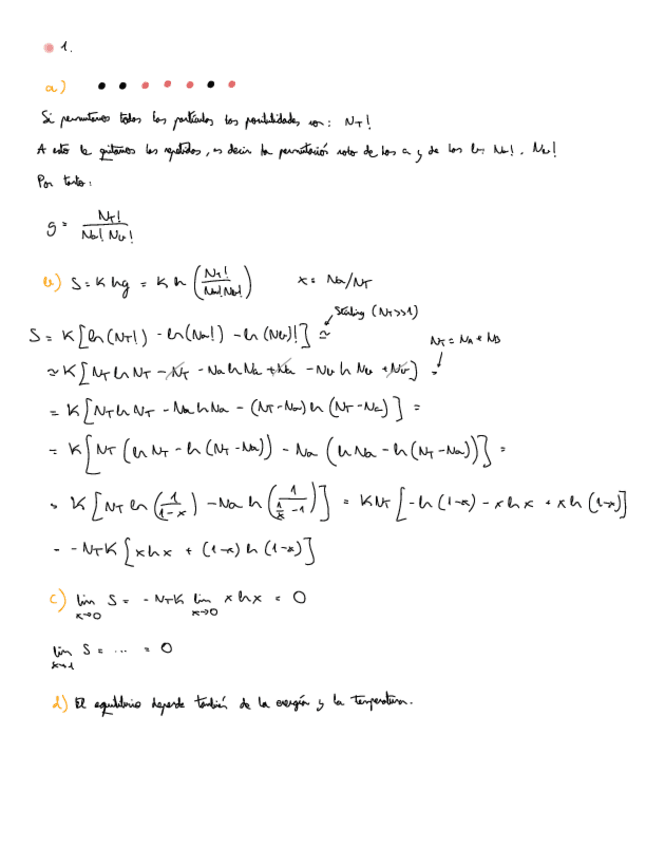 1.
a)
Si permutamos todas las partículas las posibilidades son: N_T!
A esto le quitamos las repetidas, es decir la permutación solo de los a y de los b: N_a! · N_b!
Por tanto:
g = N_T! / (N_a! N_b!)
b) S = K ln g = K ln (N_T! / (N_a! N_b!)) x = N_a/N_T
Stirling (N_T >> 1)
S = K [ln(N_T!) - ln(N_a!) - ln(N_b)!] ≃
N_T = N_A + N_B
≃ K [N_T ln N_T - N_T - N_a ln N_a + N_a - N_b ln N_b + N_b] =
= K [N_T ln N_T - N_a ln N_a - (N_T - N_a) ln (N_T - N_a)] =
= K [N_T (ln N_T - ln (N_T - N_a)) - N_a (ln N_a - ln (N_T - N_a))] =
= K [N_T ln (1/(1-x)) - N_a ln (1/(1/x - 1))] = K N_T [-ln (1-x) - x ln x + x ln (1-x)]
= - N_T K [x ln x + (1-x) ln (1-x)]
c) lim x→0 S = - N_T K lim x→0 x ln x = 0
lim x→1 S = ... = 0
d) El equilibrio depende también de la energía y la temperatura.